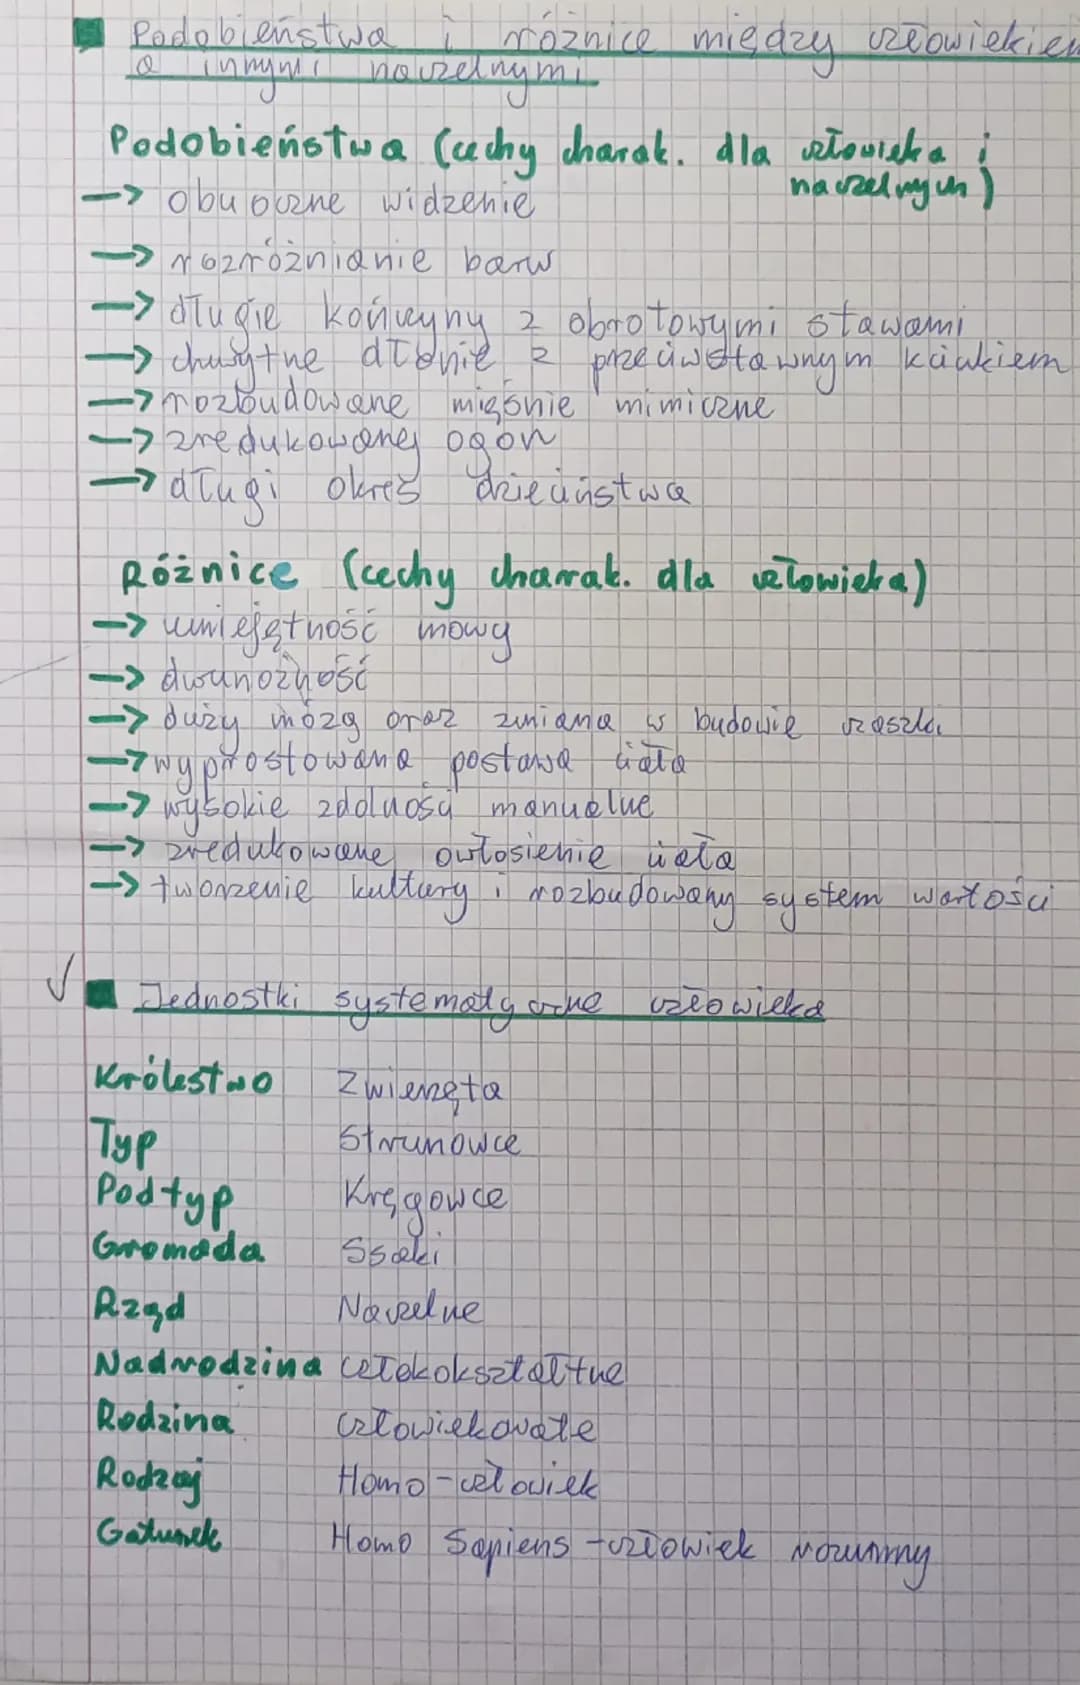 Podobieństwa i różnice między człowiekiem
a innymi naczelnymi
Podobieństwa (cechy charak. dla człowieka i
naczelnych)
→ obuoczne widzenie
→ rozróżnianie barw
→ długie kończyny z obrotowymi stawami
→ chwytne dłonie z przeciwstawnym kciukiem
→ rozbudowane mięśnie mimiczne
→ zredukowany ogon
→ długi okres dzieciństwa
Różnice (cechy charak. dla człowieka)
→ umiejętność mowy
→ dwunożność
→ duży mózg oraz zmiana w budowie czaszki
→ wyprostowana postawa ciała
→ wysokie zdolności manualne
→ zredukowane owłosienie ciała
→ tworzenie kultury i rozbudowany system wartości
Jednostki systematyczne człowieka
Królestwo Zwierzęta
Typ Strunowce
Podtyp Kręgowce
Gromada Ssaki
Rząd Naczelne
Nadrodzina człekokształtne
Rodzina człowiekowate
Rodzaj Homo - człowiek
Gatunek Homo Sapiens - człowiek rozumny